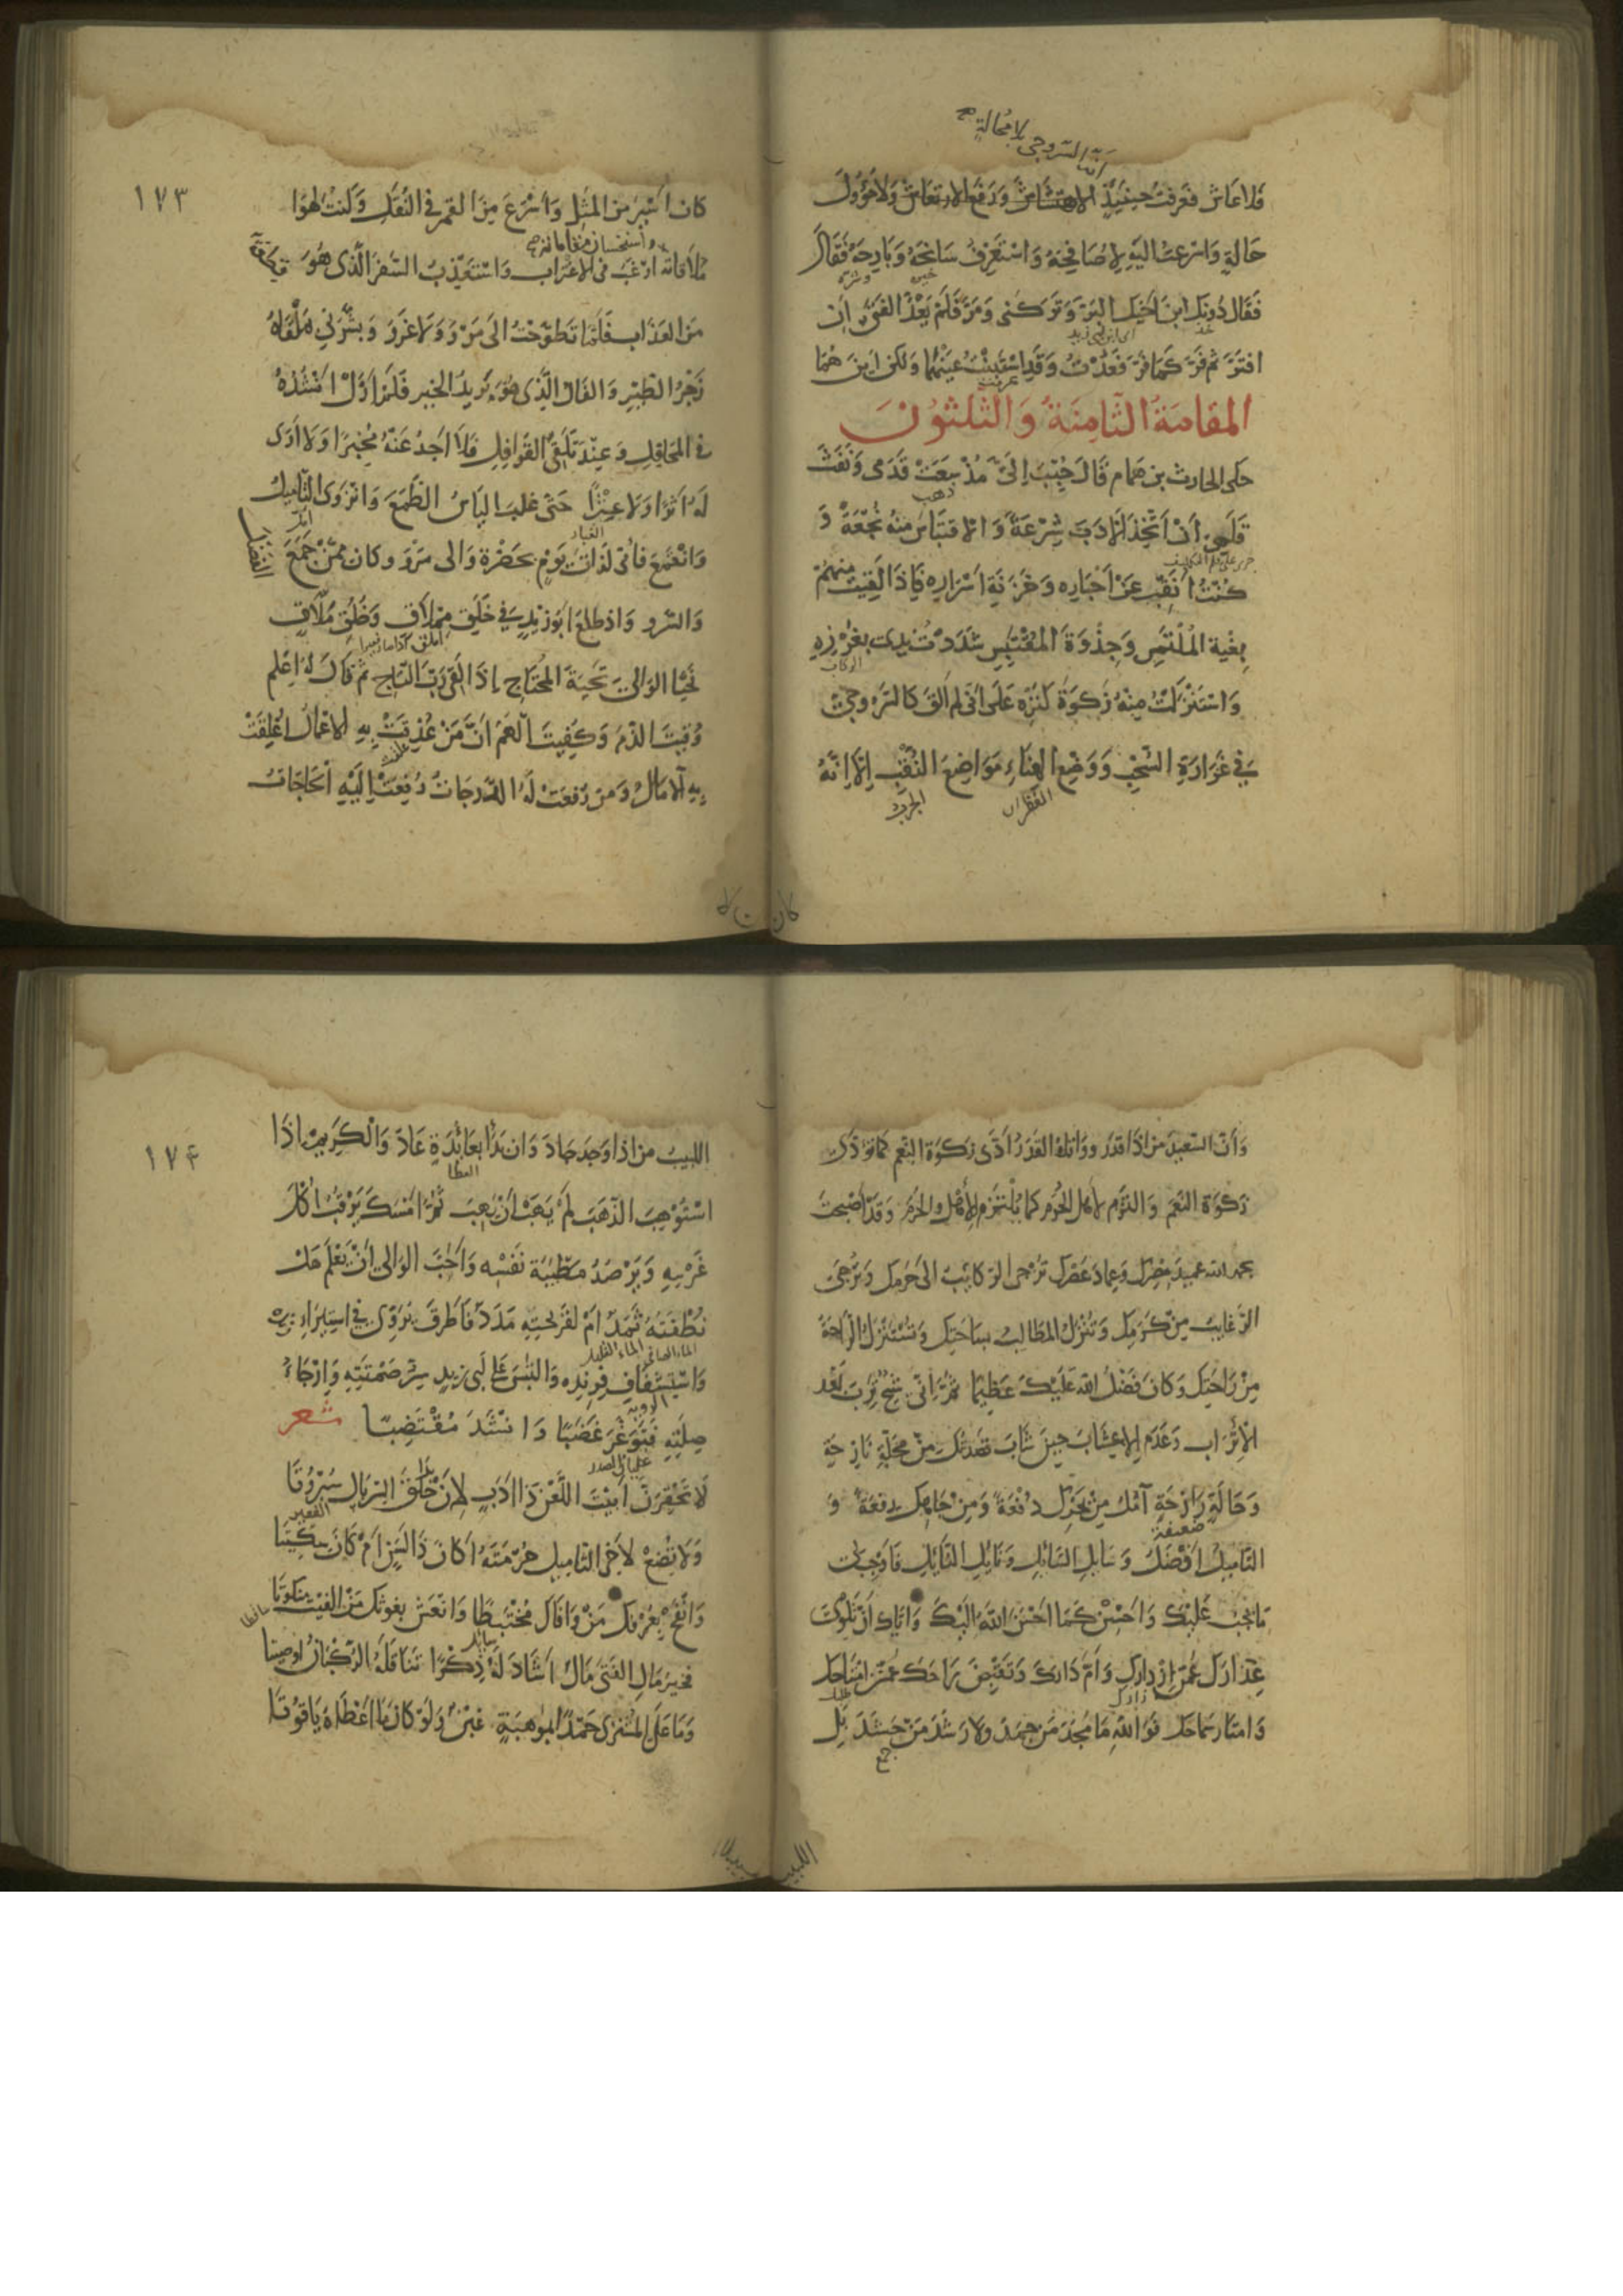 انه السروجي لا محالة صح
فلاعاش فعرفت حينئذ ورفع الارتعاش ولا مؤول
حالة واسرعت اليه لاصافحه واستعرف سانحه وبارحه فقال
خيره وشره
فقال دونك ابن اخيك البر وتركني ومر فلم يعد الفتى ان
خذ
اي ابن ابي زيد
افتر ثم فر كما فر فعدت وقد استبنت عينهما ولكن اين هما
عرفت
المقامة الثامنة والثلثون
حكى الحارث بن همام قال حبب الي مذ سعت قدمي ونفث
ذهب
قلمي ان اتخذ الادب شرعة والاقتباس منه نجعة و
كنت انقب عن اخباره وخزنة اسراره فاذا لقيت منهم
بغية الملتمس وجذوة المقتبس شددت يدي بغرزه
الركاب
واستنزلت منه زكوة كنزه على اني لم الق كالسروجي
في غزارة السحب ووضع الهناء مواضع النقب الا انه
القطران
الجرب
كان
١٧٣
كان اسير من المثل واسرع من القمر في النقل وكنت لهوا
واستحسان مقاماته صح
ملاقاته ارغب في الاغتراب واستعذب السفر الذي هو قطعة
من العذاب فلما تطوحت الى مرو ولا غرو وبشرني بملقاه
زجر الطير والفال الذي هو بريد الخير فلم ازل انشده
في المحافل وعند تلقي القوافل فلا اجد عنه مخبرا ولا ارى
له اثرا ولا عثيرا حتى غلب الياس الطمع وانزوى التاميل
الغبار
وانقمع فاني لذات يوم بحضرة والي مرو وكان ممن جمع الفضل
والسرو واذ طلع ابو زيد في خلق مملاق وخلق ملاق
فحيا الوالي تحية المحتاج اذا لقي رب التاج ثم قال له اعلم
وقيت الذم وكفيت الهم ان من عذقت به الاعمال اعلقت
به الامال ومن رفعت له الدرجات رفعت اليه الحاجات
وان السعيد من اذا قدر وواتاه القدر ادى زكوة النعم كما تؤدى
زكوة النعم والتزم لاهل الحرم كما يلتزم للاهل والحرم وقد اصبحت
بحمد الله عميد مصرك وعماد عصرك تزجى الركايب الى حرمك وترجى
الرغايب من كرمك وتنزل المطالب بساحتك وتستنزل الراحة
من راحتك وكان فضل الله عليك عظيما ثم اني شيخ ترب بعد
الاتراب وعدم الاعشاب حين شاب قصدتك من محلة نازحة
وحالة رازحة آمل من بحرك دفعة ومن جاهك رفعة و
ضعيفة
التاميل افضل وسايل السايل ونايل النايل فاوجب لي
ما يجب عليك واحسن كما احسن الله اليك واياك ان تلوي
عذارك عمن ازدارك وام دارك وتقبض راحك عمن امتاحك
زارك
وامتار سماحك فوالله ما مجد من جمد ولا رشد من حشد بل
جمع
اللبيب
١٧٤
اللبيب من اذا وجد جاد وان بدا بعائدة عاد والكريم من اذا
العطا
استوهب الذهب لم يهب ان يهب ثم امسك يرقب اكل
غرسه ويرصد مطيبة نفسه واحب الوالي ان يعلم هل
نطفته ثمد ام لقريحته مدد فاطرق يروي في استيراء زنده
الماء الصافي الماء القليل
واستشفاف فرنده والتبس على ابي زيد سر صمتته وارجاء
صلته فتوغر غضبا وانشد مقتضبا شعر
لا تحقرن ابيت اللعن ذا ادب لان بدا خلق السربال سبروتا
الفقير
ولا تضع لاخي التاميل حرمته اكان ذا لسن ام كان سكيتا
وانفح بعرفك من وافاك مختبطا وانعش بغوثك من الفيت منكوتا
سائلا
ساقطا
فخير مال الفتى مال اشاد له ذكرا تناقله الركبان او صيتا
وما على المشتري حمدا بموهبة غبن ولو كان ما اعطاه ياقوتا